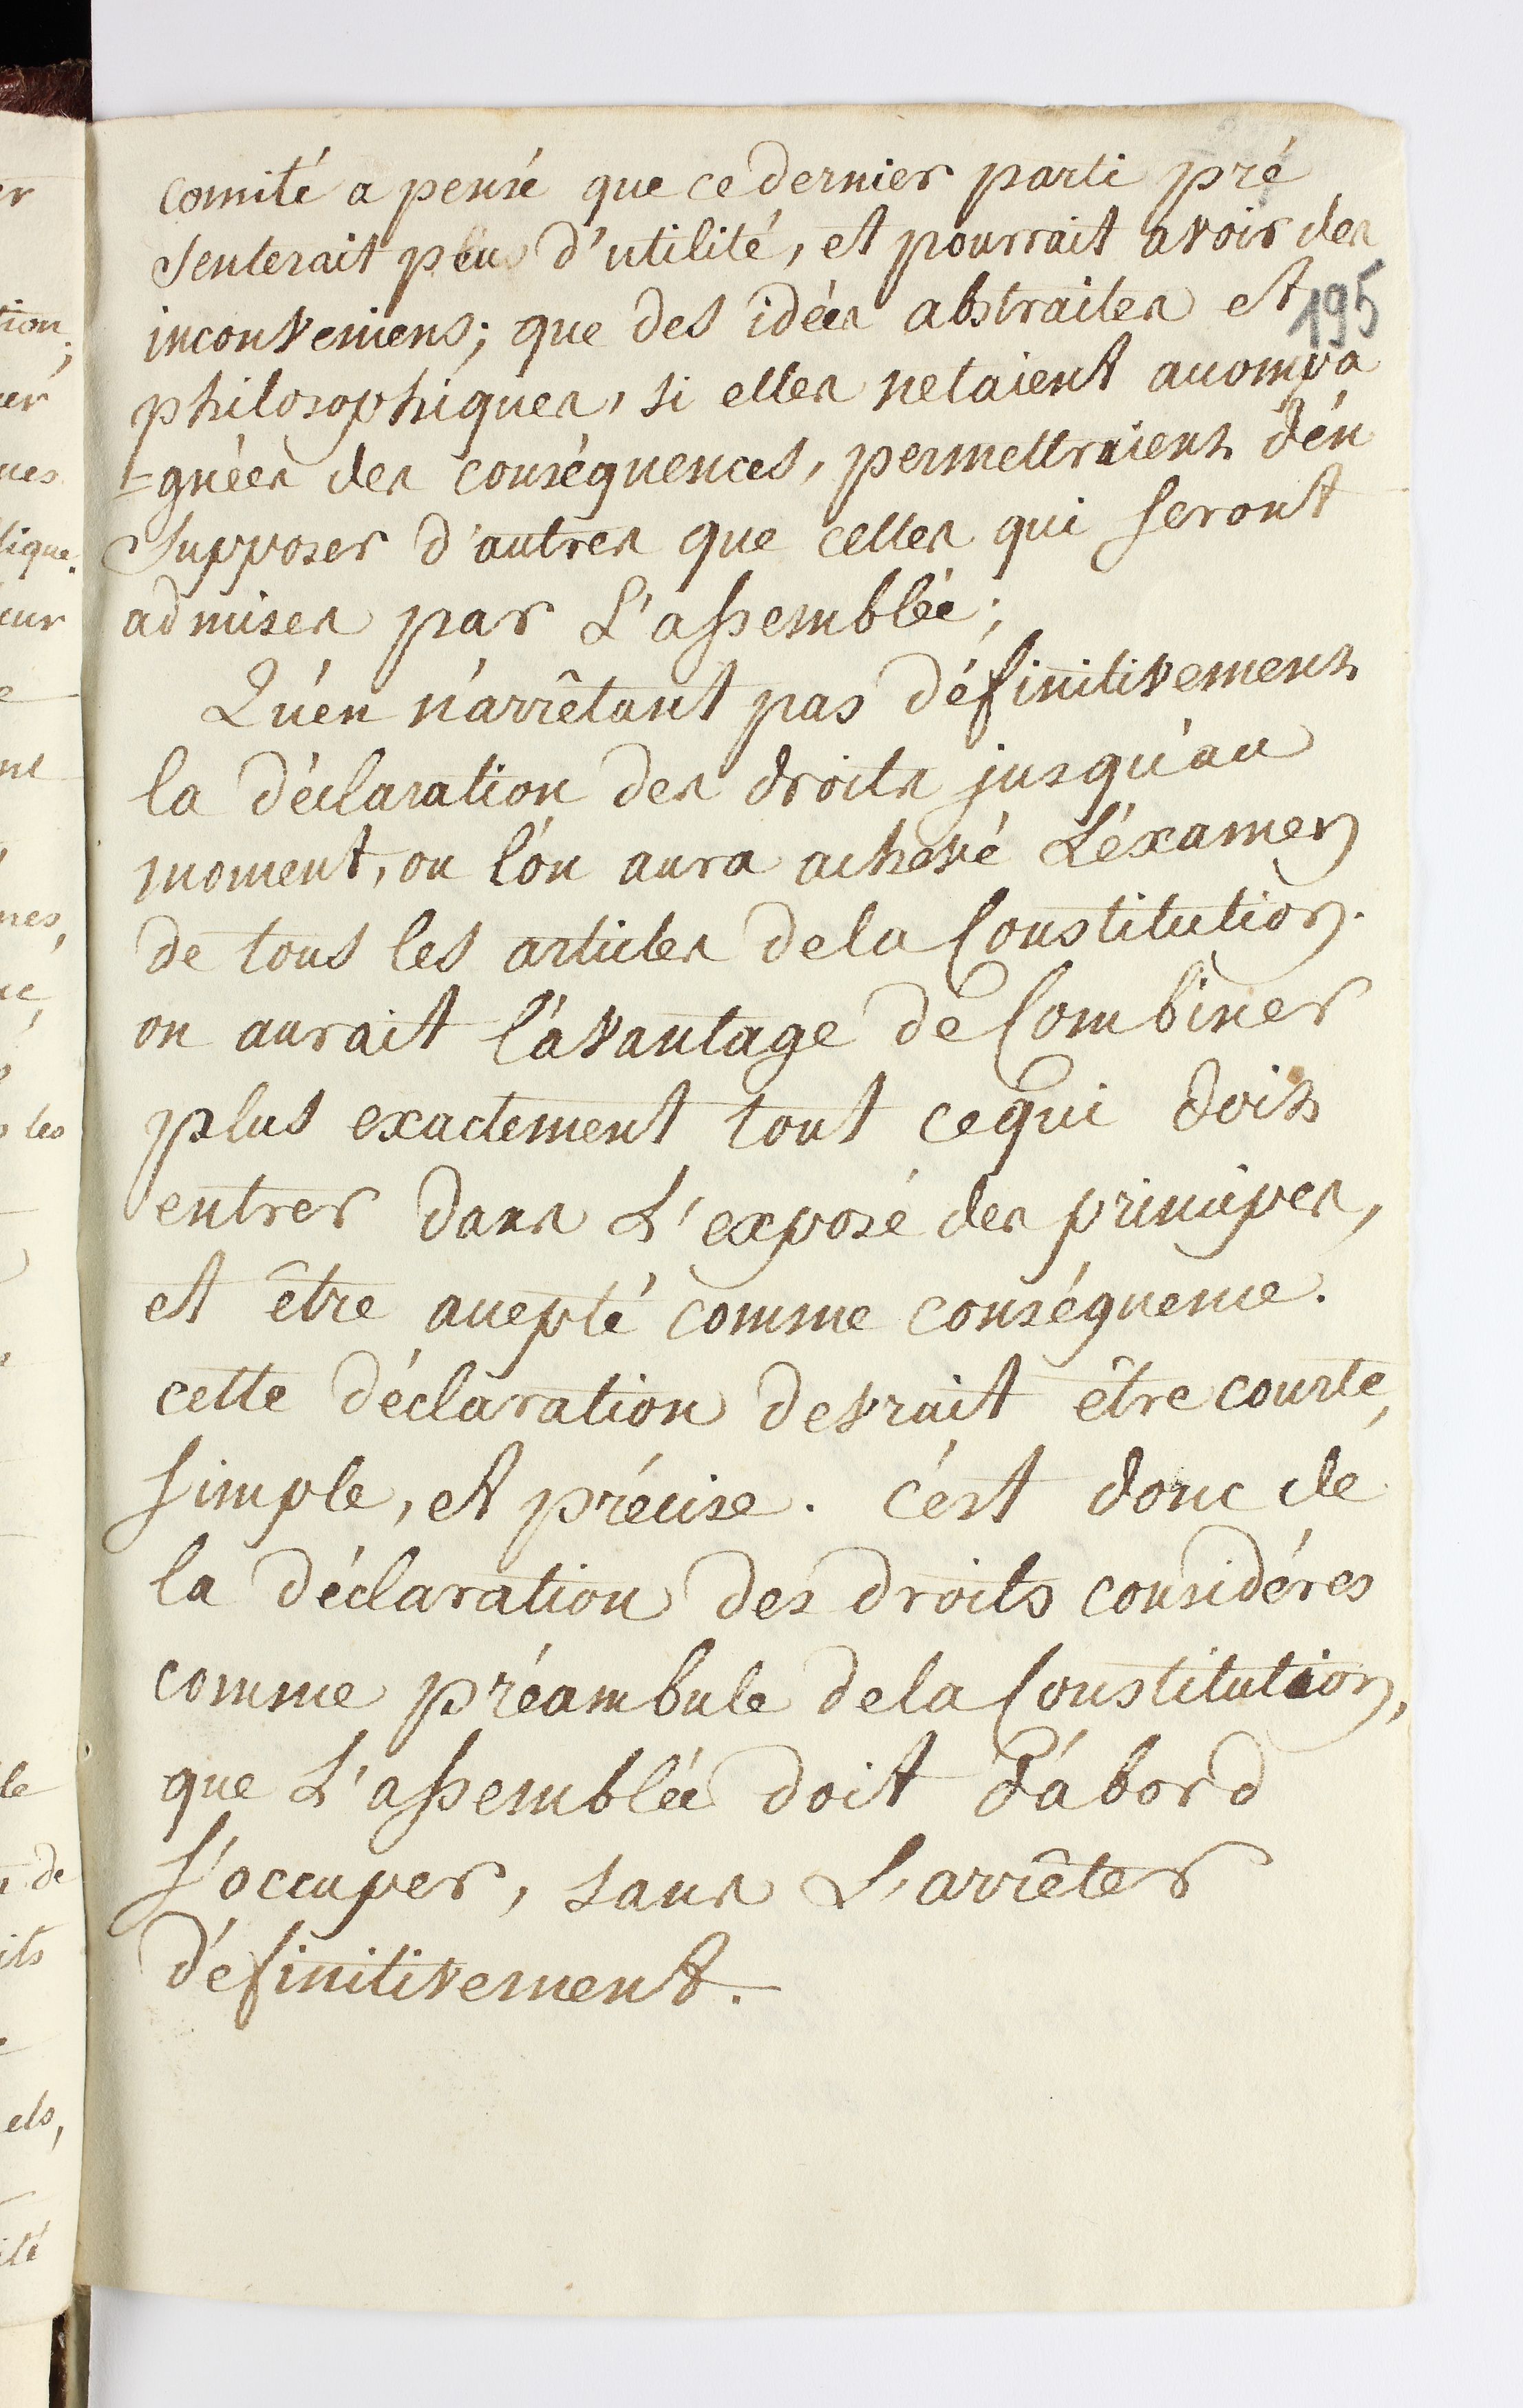 comité a pensé que ce dernier parti pré
senterait plus d'utilité, et pourrait avoir des
inconveniens; que des idées abstraites et
195
philosophiques, si elles netaient accompa
=gnées des conséquences, permettraient d'én
supposer d'autres que celles qui seront
admises par L'assemblée;
Qu'én n'arrêtant pas définitivement
la déclaration des droits jusqu'au
moment, ou l'ón aura achevé L'éxamen
de tous les articles de la Constitution.
on aurait l'ávantage de Combiner
plus exactement tout cequi doit
entrer dans L'exposé des principes,
et être accepté comme conséquence.
cette déclaration devrait être courte,
simple, et précise. c'ést donc de
la déclaration des droits considérés
comme préambule de la Constitution,
que L'assemblée doit d'ábord
s'occuper, sans L'arrêter
définitivement.